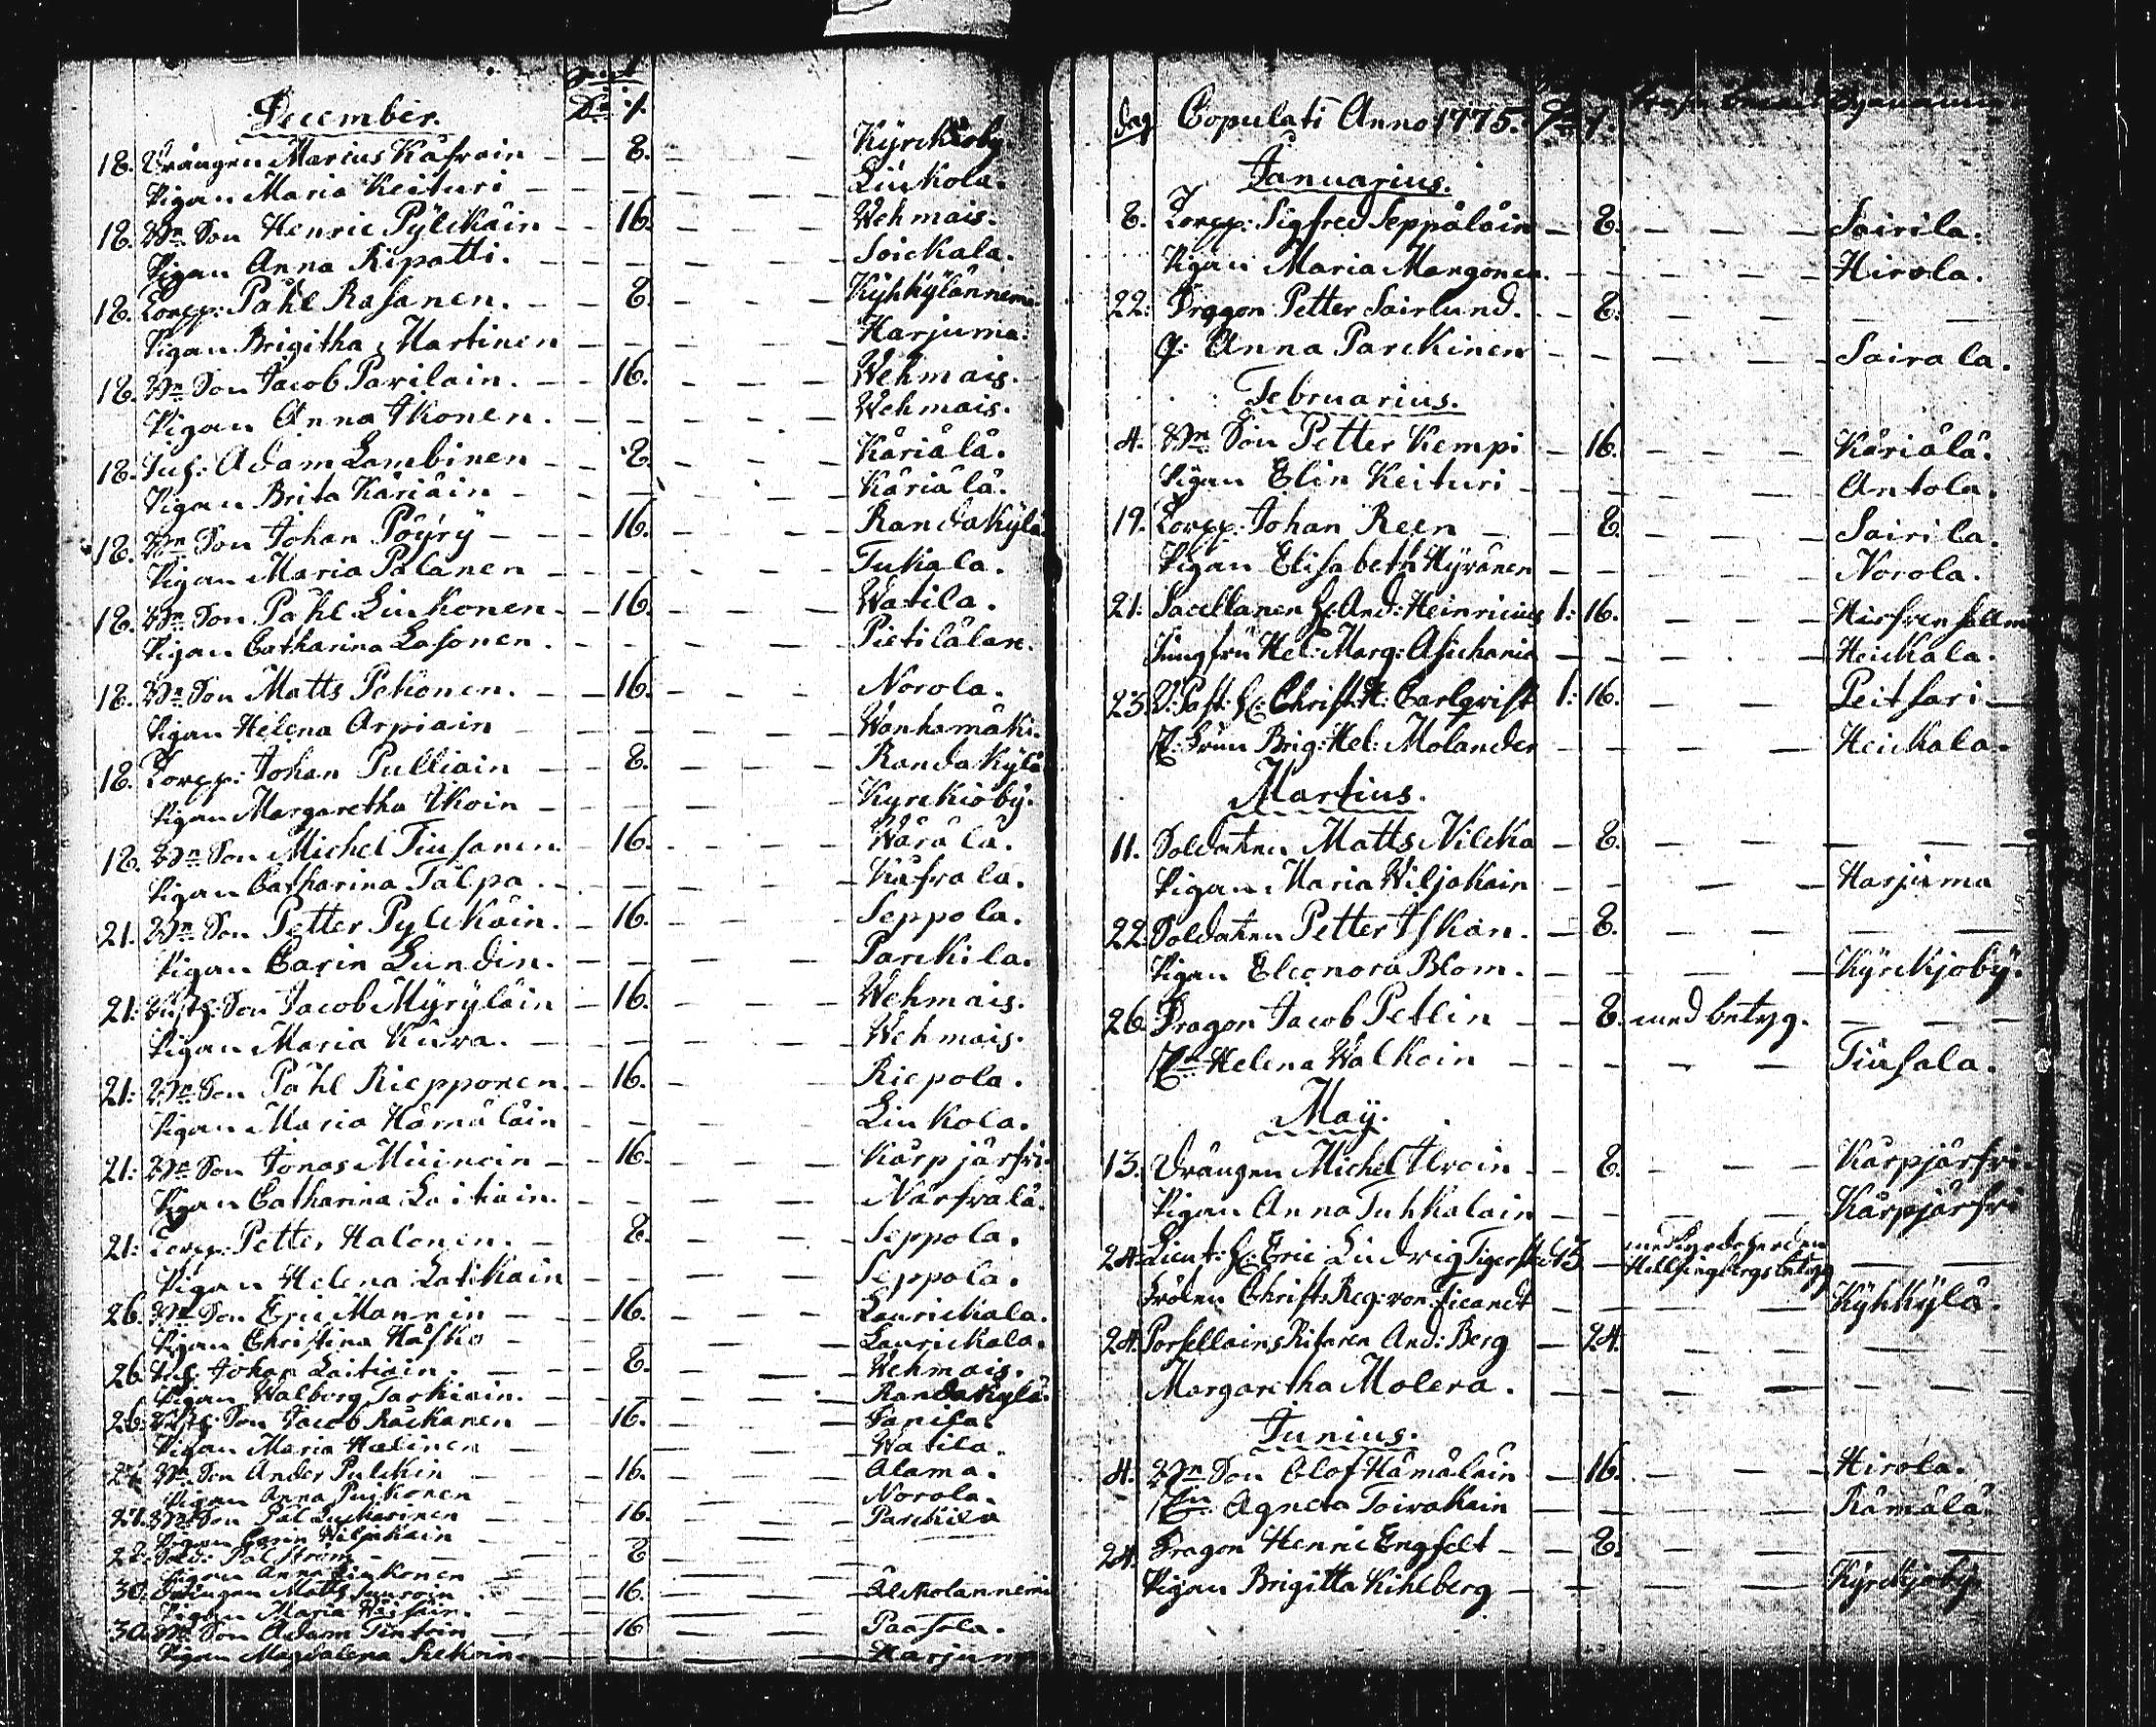 December.
18. Drängen Marcus Käfrain — 8. — Kyrckioby.
Pigan Maria Keituri — Liukola.
18. Bn Son Henric Pylckäin — 16. — Wehmais.
Pigan Anna Ripatti. — Soickala.
18. Torpp: Påhl Rasanen. — 8. — Kyhkylänneme.
Pigan Brigitha Martinen — Harjuma.
18. Bn Son Jacob Parilain. — 16. — Wehmais.
Pigan Anna Ikonen. — Wehmais.
18. Inh: Adam Lambinen — 8. — Käriälä.
Pigan Brita Käriäin — Käriälä.
18. Bn Son Johan Pöyry — 16. — Randakylä
Pigan Maria Palanen — Tukala.
18. Bn Son Påhl Liukonen — 16. — Watila.
Pigan Catharina Lasonen. — Pietiläläx.
18. Bn Son Matts Pekonen. — 16. — Norola.
Pigan Helena Arpiain — Wanhamäki.
18. Torpp: Johan Pulliain — 8. — Randakylä
Pigan Margaretha Ikoin — Kyrckioby.
18. Bn Son Michel Tiusanen. — 16. — Wärälä.
Pigan Catharina Talpa. — Käfrala.
21. Bn Son Petter Pylckäin. — 16. — Seppola.
Pigan Carin Lundin. — Parckila.
21: Son Jacob Myryläin — 16. — Wehmais.
Pigan Maria Kurva. — Wehmais.
21: Bn Son Påhl Riepponen. — 16. — Riepola.
Pigan Maria Hämäläin — Liukola.
21: Bn Son Jonas Muinoin — 16. — Kärpjärfvi.
Pigan Catharina Laitiain. — Närfvälä.
21: Torpp: Petter Halonen. — 8. — Seppola.
Pigan Helena Latikain — Seppola.
26. Bn Son Eric Mannin — 16. — Laurickala.
Pigan Christina Hasko — Laurickala.
26. Inh: Johan Laitiain. — 8. — Wehmais.
Pigan Walborg Tarkiain. — Randakylä.
26: Son Jacob Räickanen — 16. — Tanila.
Pigan Maria Halinen — Watila.
Bn Son Ander Pulckin — 16. — Alama.
Pigan Anna Puikonen — Norola.
Bn Son Pål — 16. — Parckila
Pigan Carin Wiljakain
Sold: Pål Ström — 8
Pigan Anna Liukonen
30. Drängen Matts — 16.
Pigan Maria
30. Bn Son Adam Tintoin — 16 — Paasola.
Pigan Magdalena — Harjuma
dag Copulati Anno 1775.
Januarius.
8. Torpp: Sigfred Seppäläin — 8. — Sairila.
Pigan Maria Mangonen. — Hirola.
22: Dragon Petter Sairlund. — 8.
q: Anna Parckinen — Sairala.
Februarius.
4. Bn Son Petter Kempi — 16. — Käriälä.
Pigan Elin Keituri — Antola.
19. Torpp: Johan Reen — 8. — Sairila.
Pigan Elisabeth Hyvänen — Norola.
21: Sacellanen H: And: Heinricius 1: 16. —
Jungfru Hel: Marg: Asichania — Heickala.
23. V: Past: H: Christ: H: Carlqvist 1: 16. — Peitsari
Brig: Hel: Molander — Heickala.
Martius.
11. Soldaten Matts Vilcka — 8.
Pigan Maria Wiljakain — Harjuma
22. Soldaten Petter Iskan. — 8.
Pigan Eleonora Blom. — Kyrckjoby.
26. Dragon Jacob Petlin — 8. med betyg.
Helena Walkoin — Tiusala.
May.
13. Drängen Michel Ilvoin — 8. — Kärpjärfvi.
Pigan Anna Tuhkalain — Kärpjärfvi
24. Lieut: H: Eric Ludvig Tigerstedt — Hellsingborgs betyg
Fröken Christ: Reg: von Fieandt — Kyhkylä.
24. Porsellains Ritaren And: Berg — 24.
Margaretha Molera.
Junius.
4. Bn Son Olof Hämäläin — 16. — Hirola.
Agneta Toivakain — Rämälä.
24. Dragon Henric Engfelt — 8.
Pigan Brigitta Kihlberg — Kyrckjoby.